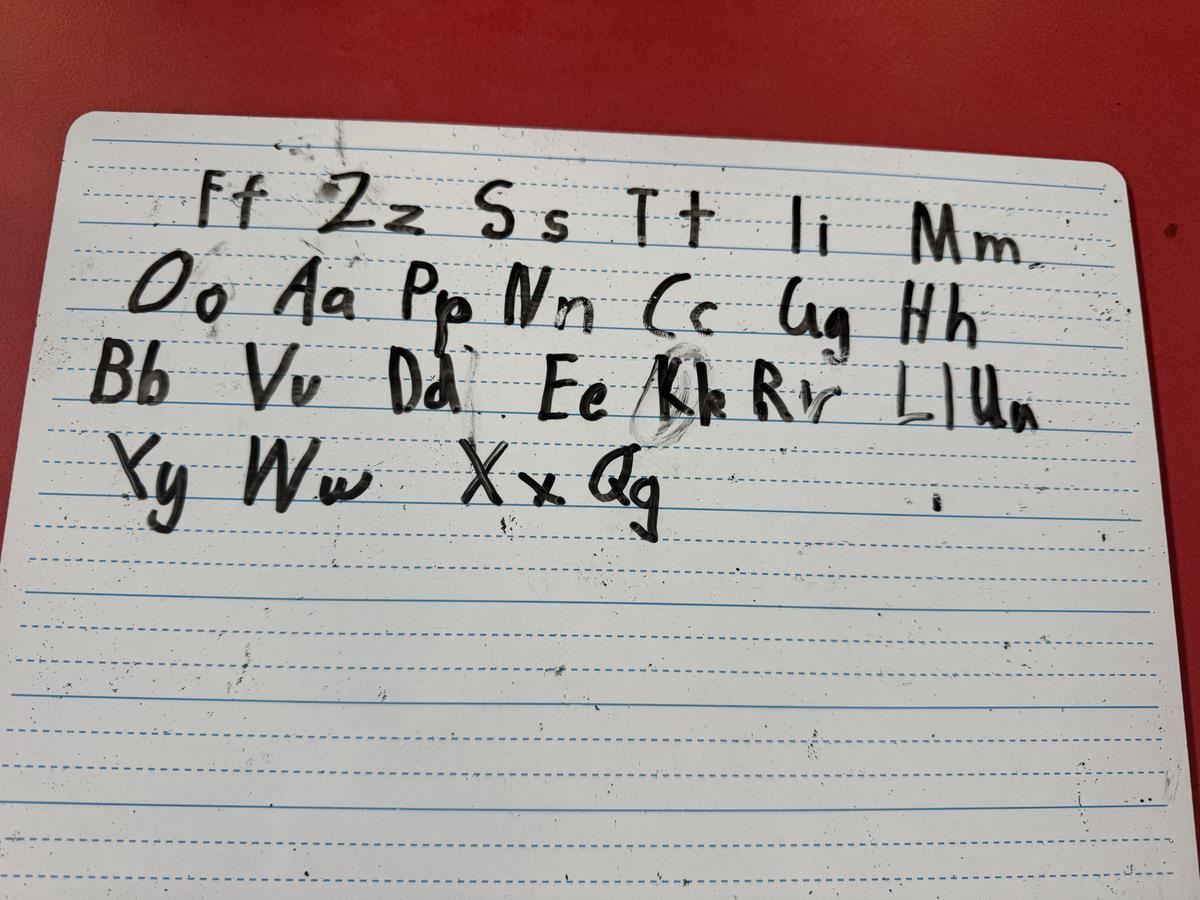 Ff Zz Ss Tt Ii Mm
Oo Aa Pp Nn Cc Gg Hh
Bb Vv Dd Ee Kk Rr Ll Uu
Yy Ww Xx Qq